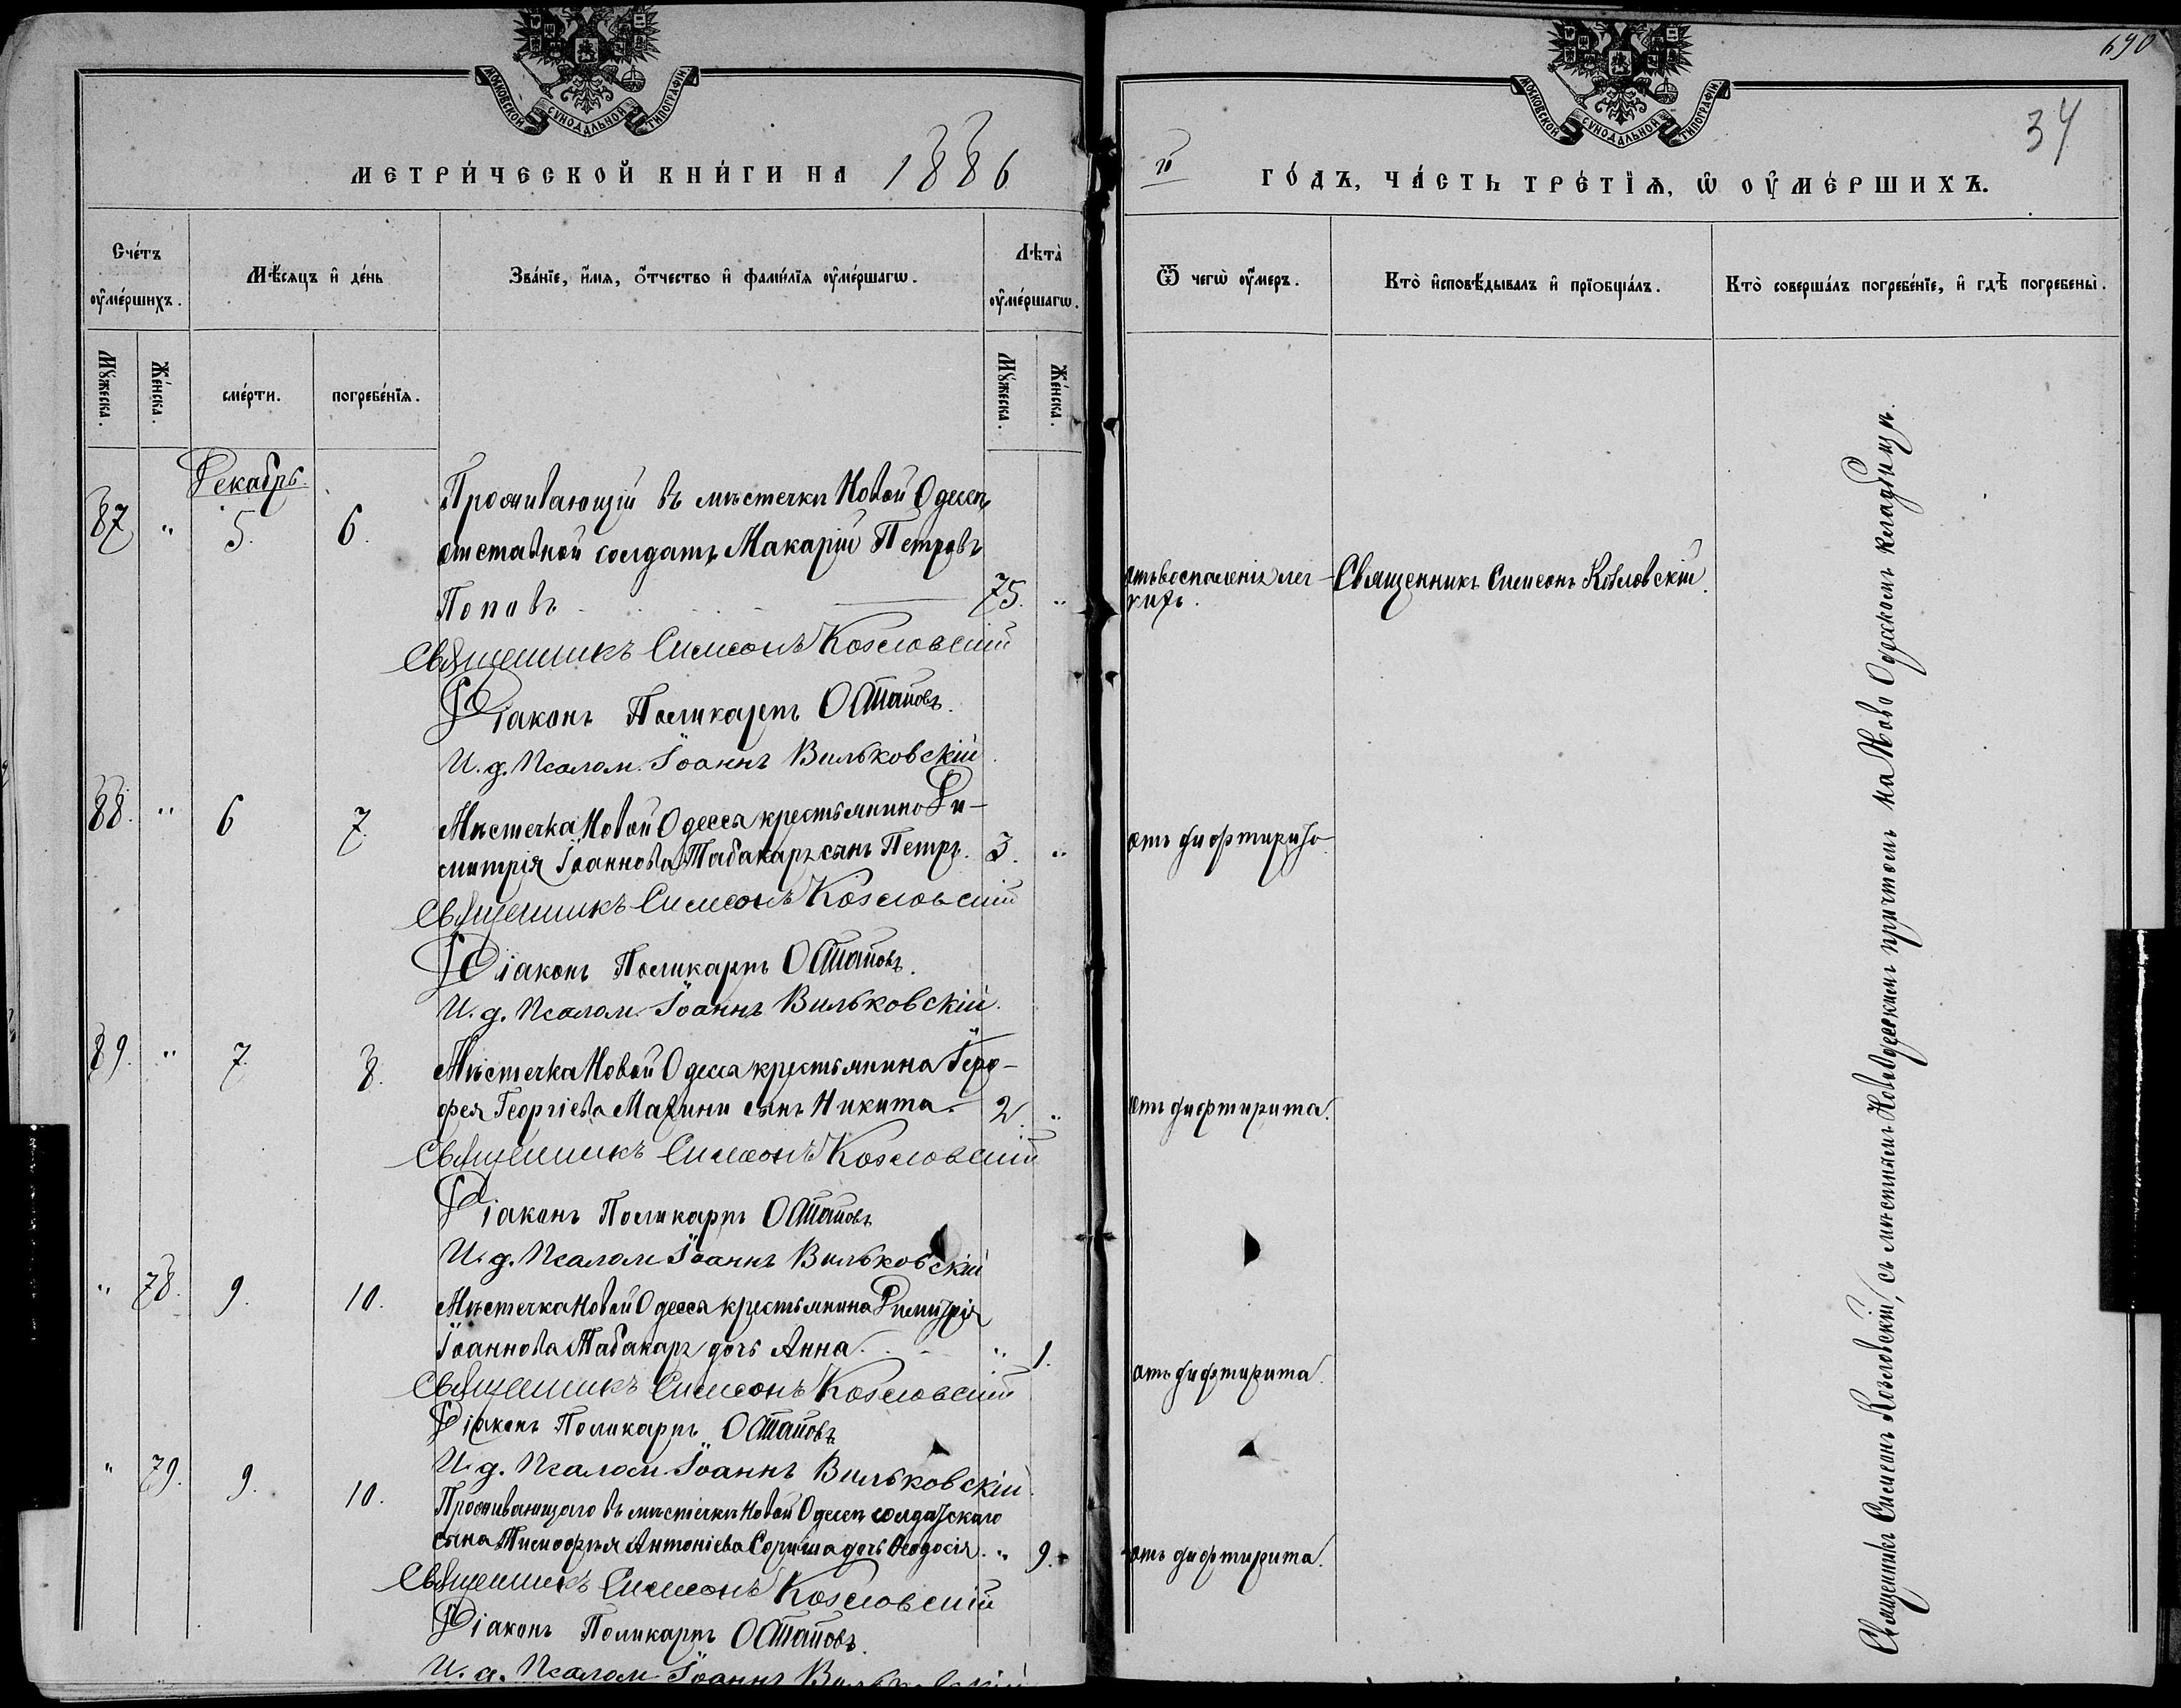 МОСКОВСКОЙ СѴНОДАЛЬНОЙ ТИПОГРАФІИ.
МЕТРИ́ЧЕСКОЙ КНИ́ГИ НА 1886
Сче́тъ оу҆ме́ршихъ.
Мѣ́сяцъ и҆ де́нь
Зва́нїе, и҆́мя, ѻ҆́тчество и҆ фами́лїя оу҆ме́ршагѡ.
Лѣта̀ оу҆ме́ршагѡ.
Мꙋ́жеска.
Же́нска.
сме́рти.
погребе́нїя.
Мꙋ́жеска.
Же́нска.
Декабрь.
87 " 5. 6. Проживающій въ мѣстечкѣ Новой Одессѣ
отставной солдатъ Макарій Петровъ
Поповъ 75. "
Священникъ Симеонъ Козловскій
Діаконъ Поликарпъ Остаповъ.
И. д. Псалом. Іоаннъ Вильковскій
88. " 6 7. Мѣстечка Новой Одесса крестьянино Ди-
митрія Іоаннова Табакаръ сынъ Петръ. 3. "
Священникъ Симеонъ Козловскій
Діаконъ Поликарпъ Остаповъ.
И. д. Псалом. Іоаннъ Вильковскій.
89. " 7. 8. Мѣстечка Новой Одесса крестьянина Іеро-
фея Георгіева Мазини сынъ Никита. 2. "
Священникъ Симеонъ Козловскій
Діаконъ Поликарпъ Остаповъ
И. д. Псалом Іоаннъ Вильковскій
" 78. 9. 10. Мѣстечка Новой Одесса крестьянина Димитрія
Іоаннова Табакаръ дочь Анна. " 1.
Священникъ Симеонъ Козловскій
Діаконъ Поликарпъ Остаповъ
И. д. Псалом Іоаннъ Вильковскій.
" 79. 9. 10. Проживающаго въ мѣстечкѣ Новой Одессѣ солдатскаго
сына Тимофѣя Антоніева дочь Ѳеодосія. " 9.
Священникъ Симеонъ Козловскій
Діаконъ Поликарпъ Остаповъ.
И. д. Псалом Іоаннъ Вильковскій
690
МОСКОВСКОЙ СѴНОДАЛЬНОЙ ТИПОГРАФІИ.
34
й ГО́ДЪ, ЧА́СТЬ ТРЕ́ТЇѦ, Ѡ҆ ОУ҆МЕ́РШИХЪ.
Ѿ чегѡ̀ оу҆́меръ.
Кто̀ и҆сповѣ́дывалъ и҆ прїобща́лъ.
Кто̀ соверша́лъ погребе́нїе, и҆ гдѣ̀ погребены̀.
отъ воспаленія лег-
кихъ.
Священникъ Симеонъ Козловскій.
отъ дифтирито
отъ дифтирита.
отъ дифтирита.
отъ дифтирита.
Священникъ Симеонъ Козловскій, съ мѣстнымъ Новоодесскимъ причтомъ на Ново Одесскомъ кладбищѣ.